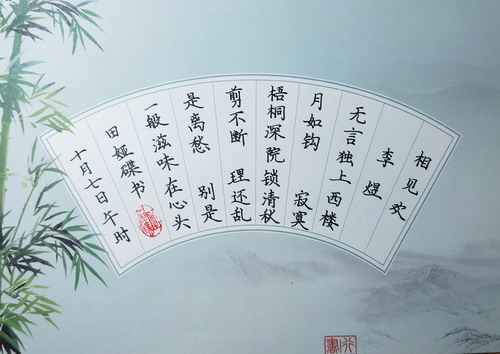 相见欢
李煜
无言独上西楼
月如钩 寂寞
梧桐深院锁清秋
剪不断 理还乱
是离愁 别是
一般滋味在心头
田娅碟书
十月七日午时